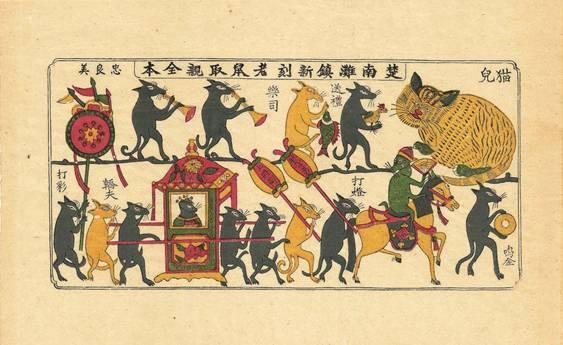 楚南灘鎮新刻老鼠取親全本
忠良美
猫兒
送禮
樂司
打彩
轎夫
打
鳴金